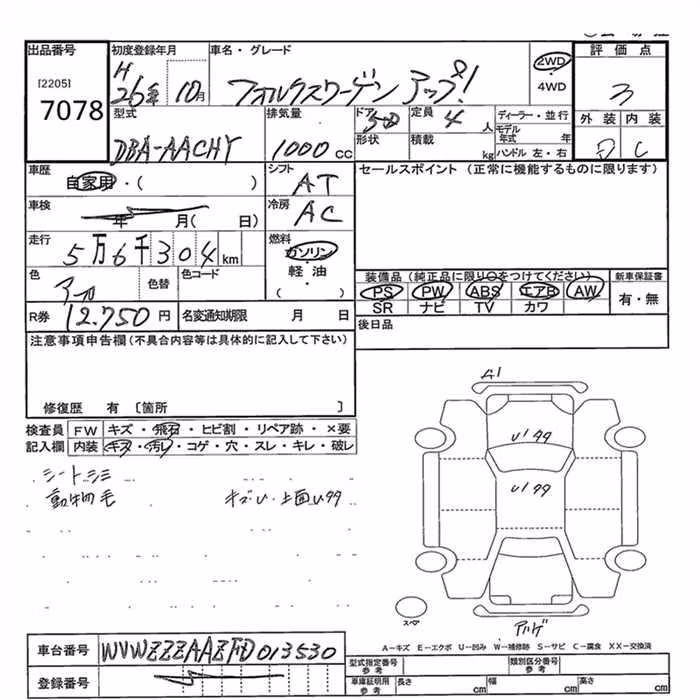 出品番号 初度登録年月 車名・グレード 2WD 評価点
[2205] H 26年 10月 フォルクスワーゲン アップ! ・ 3
7078 4WD
型式 排気量 ドア 5D 定員 4人 ディーラー・並行 外装 内装
DBA-AACHY 1000cc 形状 積載 kg モデル年式 年 D C
ハンドル 左・右
車歴 シフト セールスポイント (正常に機能するものに限ります)
自家用・( ) AT
車検 冷房
年 月( 日) AC
走行 燃料
5万6千304km ガソリン
色 色替 色コード 軽・油 装備品(純正品に限り○をつけてください) 新車保証書
( ) PS PW ABS エアB AW 有・無
R券 12.750円 名変通知期限 月 日 SR ナビ TV カワ
注意事項申告欄(不具合内容等は具体的に記入して下さい) 後日品
修復歴 有 〔箇所 〕 A1
検査員 FW キズ・飛石・ヒビ割・リペア跡・×要
記入欄 内装 キズ・汚レ・コゲ・穴・スレ・キレ・破レ U199
シートシミ U199
動物毛 キズU・上面U99
スペア
車台番号 WVWZZZAAZFD013530 A-キズ E-エクボ U-凹み W-補修跡 S-サビ C-腐食 XX-交換済
登録番号 型式指定番号 参考 類別区分番号 参考
車庫証明用 参考 長さ cm 幅 cm 高さ cm